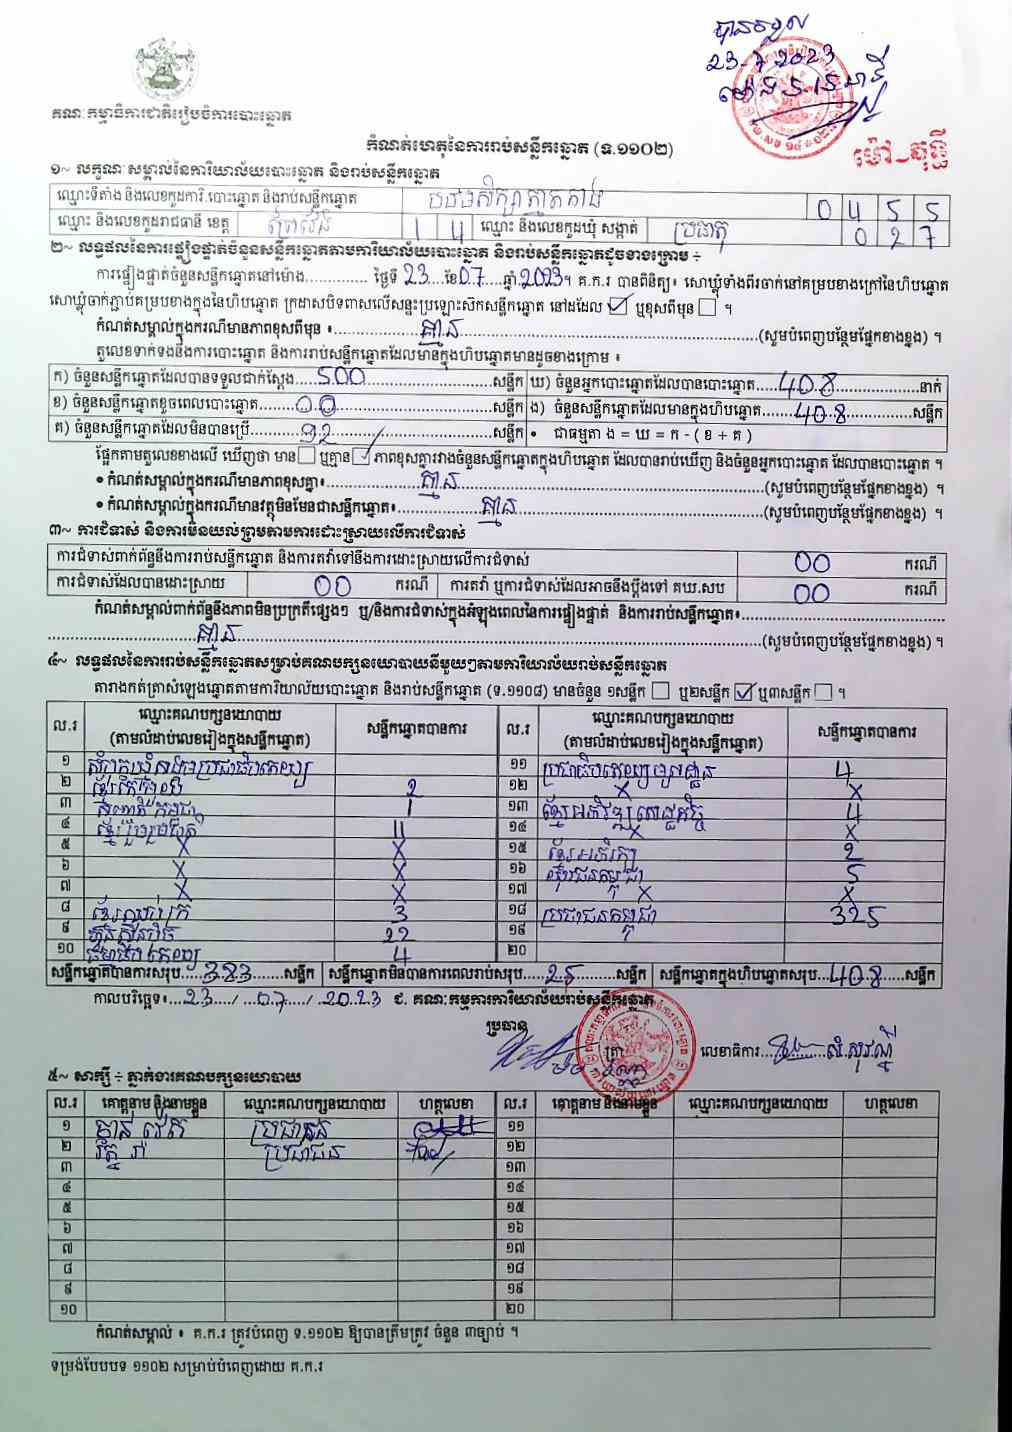 បានចូល
23-7-2023
គណៈកម្មាធិការជាតិរៀបចំការបោះឆ្នោត
ម៉ៅ-គុន្ធី
កំណត់ហេតុនៃការរាប់សន្លឹកឆ្នោត (ទ.១១០២)
១~ លក្ខណៈសម្គាល់នៃការិយាល័យបោះឆ្នោត និងរាប់សន្លឹកឆ្នោត
ឈ្មោះទីតាំង និងលេខកូដការិ.បោះឆ្នោត និងរាប់សន្លឹកឆ្នោត 0 4 5 5
ឈ្មោះ និងលេខកូដរាជធានី ខេត្ត ព្រៃវែង 1 4 ឈ្មោះ និងលេខកូដឃុំ សង្កាត់ ប្រធាតុ 0 2 7
២~ លទ្ធផលនៃការផ្ទៀងផ្ទាត់ចំនួនសន្លឹកឆ្នោតតាមការិយាល័យបោះឆ្នោត និងរាប់សន្លឹកឆ្នោតដូចខាងក្រោម ÷
ការផ្ទៀងផ្ទាត់ចំនួនសន្លឹកឆ្នោតនៅម៉ោង.............. ថ្ងៃទី 23 ខែ 07 ឆ្នាំ 2023។ គ.ក.រ បានពិនិត្យ៖ សោឃ្លុំទាំងពីរចាក់នៅគម្របខាងក្រៅនៃហិបឆ្នោត
សោឃ្លុំចាក់ភ្ជាប់គម្របខាងក្នុងនៃហិបឆ្នោត ក្រដាសបិទពាសលើសន្ទះប្រឡោះសិកសន្លឹកឆ្នោត នៅដដែល ☑ ឬខុសពីមុន ☐ ។
កំណត់សម្គាល់ក្នុងករណីមានភាពខុសពីមុន ៖ គ្មាន (សូមបំពេញបន្ថែមផ្នែកខាងខ្នង) ។
តួលេខទាក់ទងនឹងការបោះឆ្នោត និងការរាប់សន្លឹកឆ្នោតដែលមានក្នុងហិបឆ្នោតមានដូចខាងក្រោម ៖
ក) ចំនួនសន្លឹកឆ្នោតដែលបានទទួលជាក់ស្តែង 500 សន្លឹក ឃ) ចំនួនអ្នកបោះឆ្នោតដែលបានបោះឆ្នោត 408 នាក់
ខ) ចំនួនសន្លឹកឆ្នោតខូចពេលបោះឆ្នោត 00 សន្លឹក ង) ចំនួនសន្លឹកឆ្នោតដែលមានក្នុងហិបឆ្នោត 408 សន្លឹក
គ) ចំនួនសន្លឹកឆ្នោតដែលមិនបានប្រើ 92 សន្លឹក • ជាធម្មតា ង = ឃ = ក - ( ខ + គ )
ផ្អែកតាមតួលេខខាងលើ ឃើញថា មាន ☐ ឬគ្មាន ☑ ភាពខុសគ្នារវាងចំនួនសន្លឹកឆ្នោតក្នុងហិបឆ្នោត ដែលបានរាប់ឃើញ និងចំនួនអ្នកបោះឆ្នោត ដែលបានបោះឆ្នោត ។
• កំណត់សម្គាល់ក្នុងករណីមានភាពខុសគ្នា៖ គ្មាន (សូមបំពេញបន្ថែមផ្នែកខាងខ្នង) ។
• កំណត់សម្គាល់ក្នុងករណីមានវត្ថុមិនមែនជាសន្លឹកឆ្នោត៖ គ្មាន (សូមបំពេញបន្ថែមផ្នែកខាងខ្នង) ។
៣~ ការជំទាស់ និងការមិនយល់ព្រមតាមការដោះស្រាយលើការជំទាស់
ការជំទាស់ពាក់ព័ន្ធនឹងការរាប់សន្លឹកឆ្នោត និងការតវ៉ាទៅនឹងការដោះស្រាយលើការជំទាស់ 00 ករណី
ការជំទាស់ដែលបានដោះស្រាយ 00 ករណី ការតវ៉ា ឬការជំទាស់ដែលអាចនឹងប្តឹងទៅ គឃ.សប 00 ករណី
កំណត់សម្គាល់ពាក់ព័ន្ធនឹងភាពមិនប្រក្រតីផ្សេងៗ ឬ/និងការជំទាស់ក្នុងអំឡុងពេលនៃការផ្ទៀងផ្ទាត់ និងការរាប់សន្លឹកឆ្នោត៖
គ្មាន (សូមបំពេញបន្ថែមផ្នែកខាងខ្នង) ។
៤~ លទ្ធផលនៃការរាប់សន្លឹកឆ្នោតសម្រាប់គណបក្សនយោបាយនីមួយៗតាមការិយាល័យរាប់សន្លឹកឆ្នោត
តារាងកត់ត្រាសំឡេងឆ្នោតតាមការិយាល័យបោះឆ្នោត និងរាប់សន្លឹកឆ្នោត (ទ.១១០៨) មានចំនួន ១សន្លឹក ☐ ឬ២សន្លឹក ☑ ឬ៣សន្លឹក ☐ ។
ល.រ ឈ្មោះគណបក្សនយោបាយ (តាមលំដាប់លេខរៀងក្នុងសន្លឹកឆ្នោត) សន្លឹកឆ្នោតបានការ ល.រ ឈ្មោះគណបក្សនយោបាយ (តាមលំដាប់លេខរៀងក្នុងសន្លឹកឆ្នោត) សន្លឹកឆ្នោតបានការ
១ សំបុកឃ្មុំសង្គមប្រជាធិបតេយ្យ ១១ ប្រជាធិបតេយ្យមូលដ្ឋាន 4
២ 2 ១២ X X
៣ 1 ១៣ ខ្មែរអភិវឌ្ឍសេដ្ឋកិច្ច 4
៤ ខ្មែររួបរួមជាតិ 11 ១៤ X X
៥ X X ១៥ ខ្មែរអភិរក្ស 2
៦ X X ១៦ យុវជនកម្ពុជា 5
៧ X X ១៧ X X
៨ ខ្មែរឈប់ក្រ 3 ១៨ ប្រជាជនកម្ពុជា 325
៩ ហ្វ៊ុនស៊ិនប៉ិច 22 ១៩
១០ ធម្មាធិបតេយ្យ 4 ២០
សន្លឹកឆ្នោតបានការសរុប 383 សន្លឹក សន្លឹកឆ្នោតមិនបានការពេលរាប់សរុប 25 សន្លឹក សន្លឹកឆ្នោតក្នុងហិបឆ្នោតសរុប 408 សន្លឹក
កាលបរិច្ឆេទ៖ 23 / 07 / 2023 ជ. គណៈកម្មការការិយាល័យរាប់សន្លឹកឆ្នោត
ប្រធាន
ត្រា
លេខាធិការ សំ.សុវណ្ណី
៥~ សាក្សី ÷ ភ្នាក់ងារគណបក្សនយោបាយ
ល.រ គោត្តនាម និងនាមខ្លួន ឈ្មោះគណបក្សនយោបាយ ហត្ថលេខា ល.រ គោត្តនាម និងនាមខ្លួន ឈ្មោះគណបក្សនយោបាយ ហត្ថលេខា
១ ប្រជាជន ១១
២ ប្រជាជន ១២
៣ ១៣
៤ ១៤
៥ ១៥
៦ ១៦
៧ ១៧
៨ ១៨
៩ ១៩
១០ ២០
កំណត់សម្គាល់ ៖ គ.ក.រ ត្រូវបំពេញ ទ.១១០២ ឱ្យបានត្រឹមត្រូវ ចំនួន ៣ច្បាប់ ។
ទម្រង់បែបបទ ១១០២ សម្រាប់បំពេញដោយ គ.ក.រ